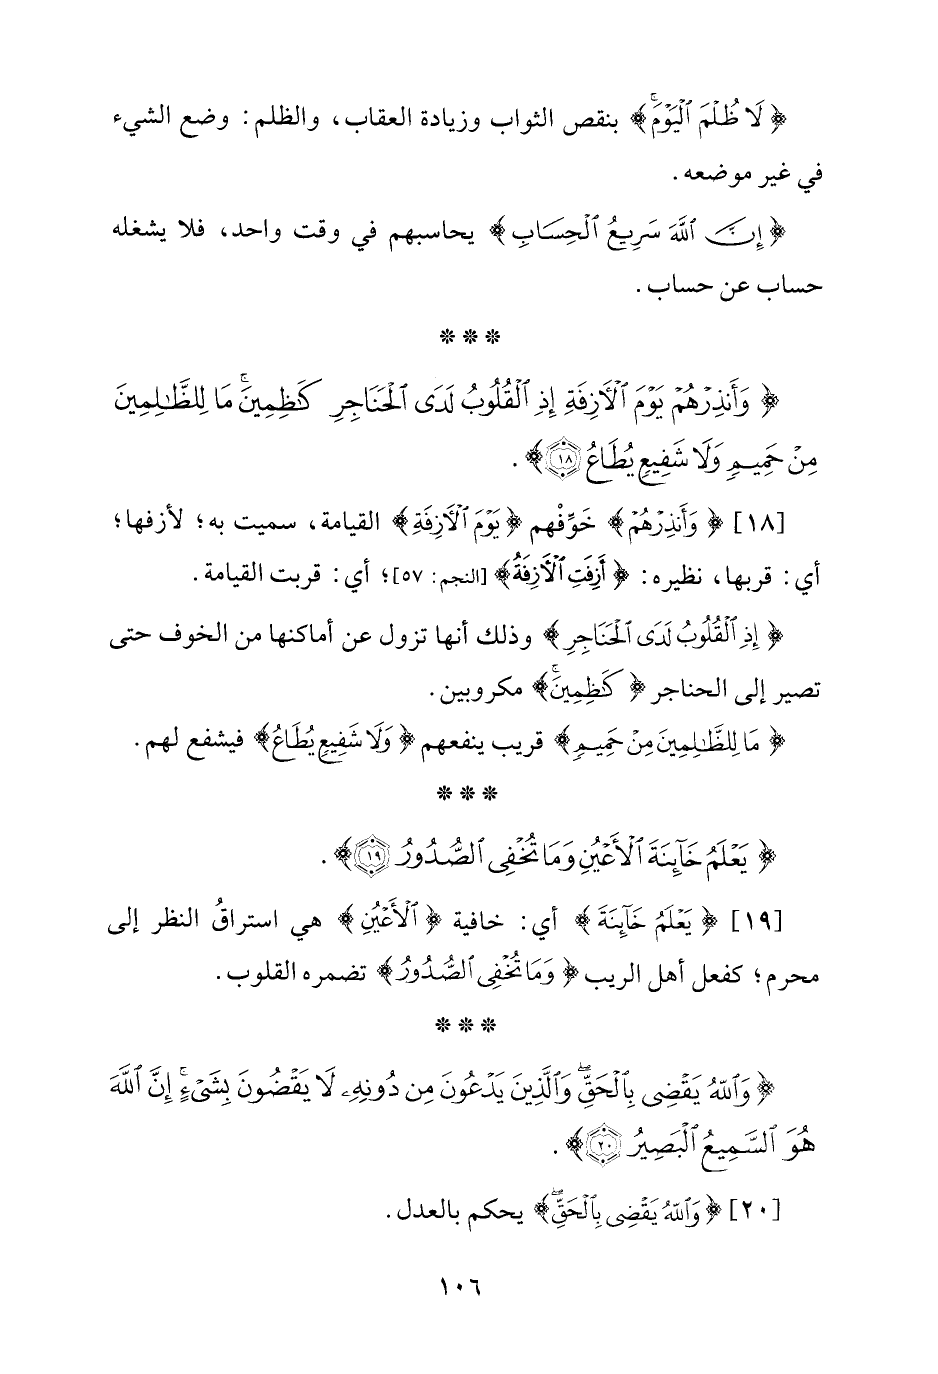 ﴿لَا ظُلْمَ الْيَوْمَ ۚ﴾ بنقص الثواب وزيادة العقاب، والظلم: وضع الشيء
في غير موضعه.
﴿إِنَّ ٱللَّهَ سَرِيعُ ٱلْحِسَابِ﴾ يحاسبهم في وقت واحد، فلا يشغله
حساب عن حساب.
* * *
﴿وَأَنذِرْهُمْ يَوْمَ ٱلْأَزِفَةِ إِذِ ٱلْقُلُوبُ لَدَى ٱلْحَنَاجِرِ كَٰظِمِينَ ۚ مَا لِلظَّٰلِمِينَ
مِنْ حَمِيمٍ وَلَا شَفِيعٍ يُطَاعُ ١٨﴾.
[١٨] ﴿وَأَنذِرْهُمْ﴾ خَوِّفْهم ﴿يَوْمَ ٱلْأَزِفَةِ﴾ القيامة، سميت به؛ لأزفها؛
أي: قربها، نظيره: ﴿أَزِفَتِ ٱلْأَزِفَةُ﴾ [النجم: ٥٧]؛ أي: قربت القيامة.
﴿إِذِ ٱلْقُلُوبُ لَدَى ٱلْحَنَاجِرِ﴾ وذلك أنها تزول عن أماكنها من الخوف حتى
تصير إلى الحناجر ﴿كَٰظِمِينَ ۚ﴾ مكروبين.
﴿مَا لِلظَّٰلِمِينَ مِنْ حَمِيمٍ﴾ قريب ينفعهم ﴿وَلَا شَفِيعٍ يُطَاعُ﴾ فيشفع لهم.
* * *
﴿يَعْلَمُ خَآئِنَةَ ٱلْأَعْيُنِ وَمَا تُخْفِى ٱلصُّدُورُ ١٩﴾.
[١٩] ﴿يَعْلَمُ خَآئِنَةَ﴾ أي: خافية ﴿ٱلْأَعْيُنِ﴾ هي استراقُ النظر إلى
محرم؛ كفعل أهل الريب ﴿وَمَا تُخْفِى ٱلصُّدُورُ﴾ تضمره القلوب.
* * *
﴿وَٱللَّهُ يَقْضِى بِٱلْحَقِّ ۖ وَٱلَّذِينَ يَدْعُونَ مِن دُونِهِۦ لَا يَقْضُونَ بِشَىْءٍ ۚ إِنَّ ٱللَّهَ
هُوَ ٱلسَّمِيعُ ٱلْبَصِيرُ ٢٠﴾.
[٢٠] ﴿وَٱللَّهُ يَقْضِى بِٱلْحَقِّ ۖ﴾ يحكم بالعدل.
١٠٦